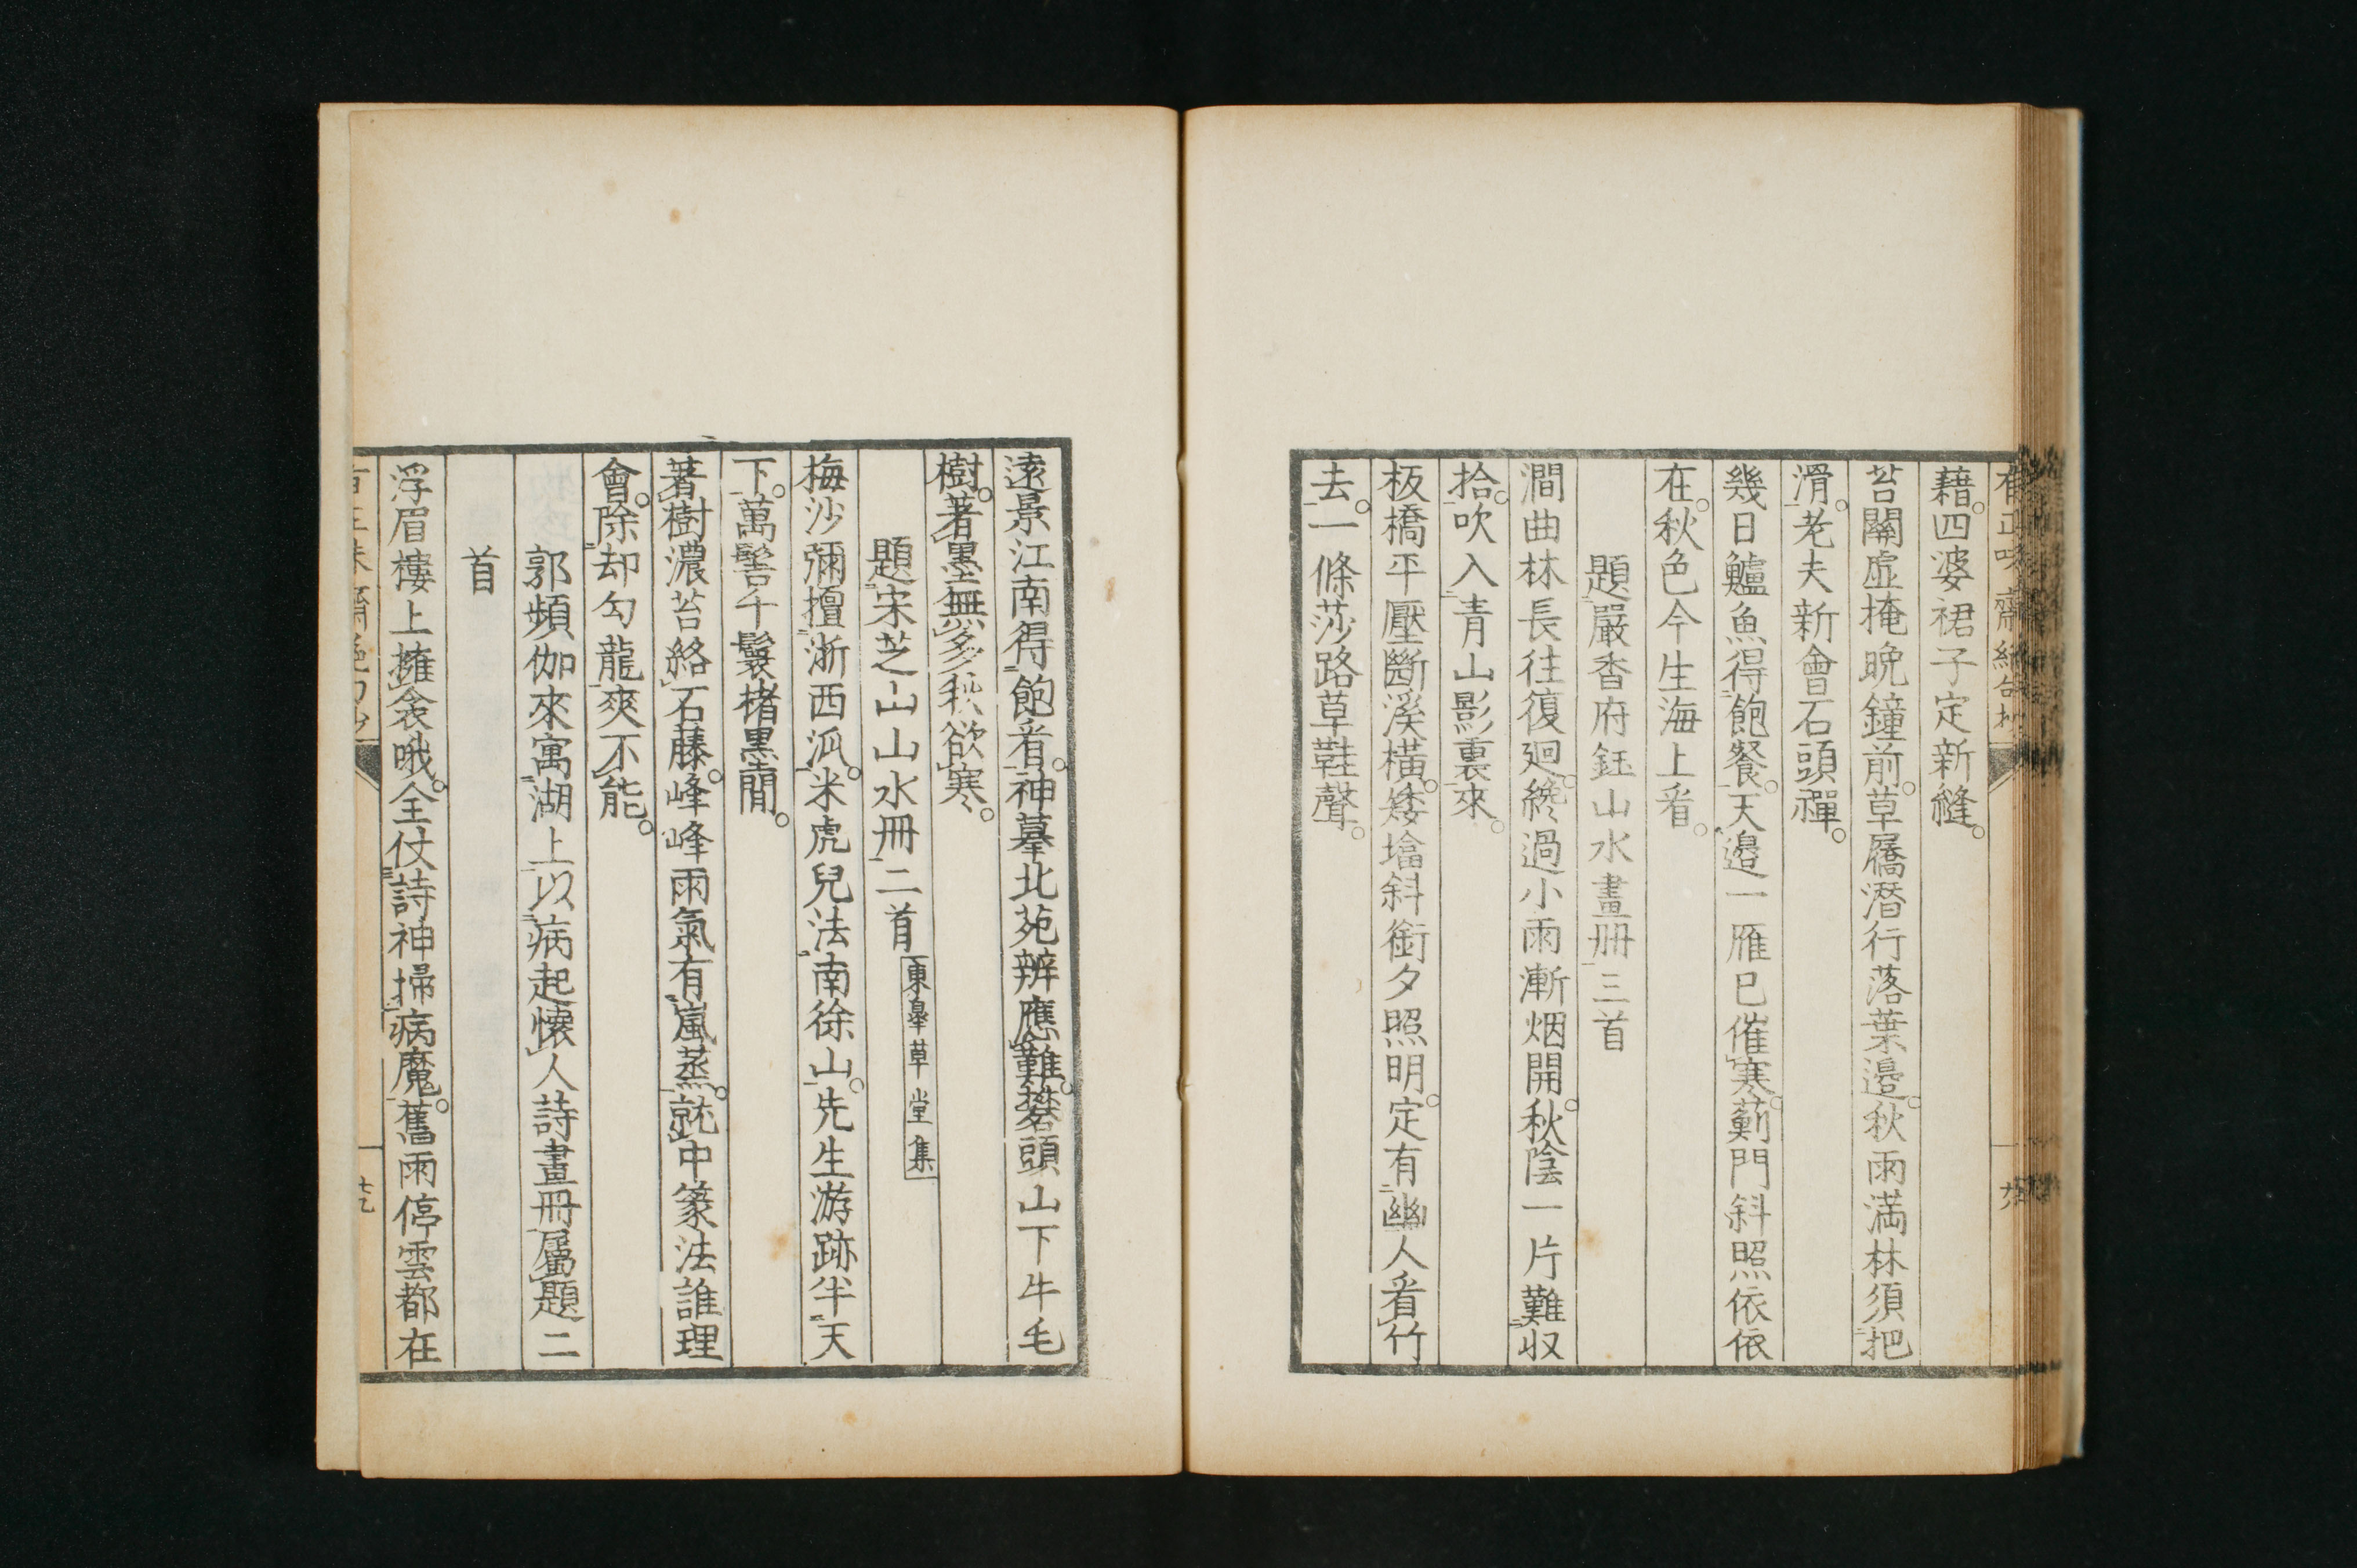 藉。四婆裙子定新縫。
苔關虛掩晩鐘前。草屩潛行落葉邊。秋雨滿林須把
滑。老夫新會石頭禪。
幾日鱸魚得飽餐。天邊一雁已催寒。薊門斜照依依
在。秋色今生海上看。
題嚴香府鈺山水畫冊三首
澗曲林長往復廻。纔過小雨漸烟開。秋陰一片難収
拾。吹入青山影裏來。
板橋平壓斷溪橫。矮墖斜銜夕照明。定有幽人看竹
去。一條莎路草鞋聲。
遠景江南得飽看。神摹北苑辨應難。礬頭山下牛毛
樹。著墨無多秋欲寒。
題宋芝山山水冊二首東皋草堂集
梅沙彌擅浙西派。米虎兒法南徐山。先生游跡半天
下。萬髻千鬟楮墨間。
著樹濃苔絡石藤。峰峰雨氣有嵐蒸。就中篆法誰理
會。除却勾龍爽不能。
郭頻伽來寓湖上以病起懷人詩畫冊屬題二
首
浮眉樓上擁衾哦。全仗詩神掃病魔。舊雨停雲都在